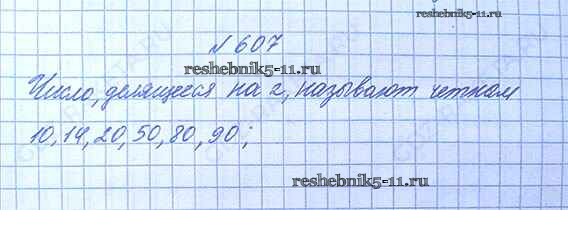 reshebnik5-11.ru
№ 607
reshebnik5-11.ru
Число, делящееся на 2, называют четном
10, 14, 20, 50, 80, 90;
reshebnik5-11.ru